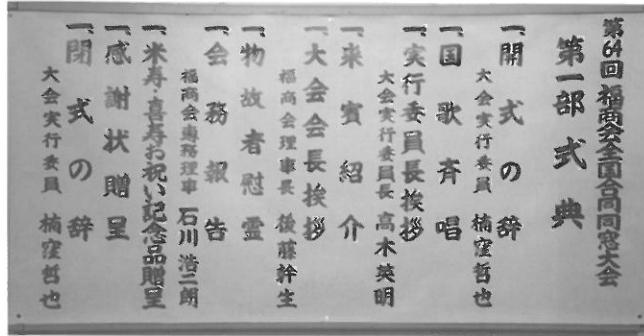 第64回 福商会全国合同同窓大会
第一部 式典
一、開式の辞
大会実行委員 楠窪哲也
一、国歌斉唱
一、実行委員長挨拶
大会実行委員長 高木英明
一、来賓紹介
一、大会会長挨拶
福商会理事長 後藤幹生
一、物故者慰霊
一、会務報告
福商会専務理事 石川浩二朗
一、米寿・喜寿お祝い記念品贈呈
一、感謝状贈呈
一、閉式の辞
大会実行委員 楠窪哲也